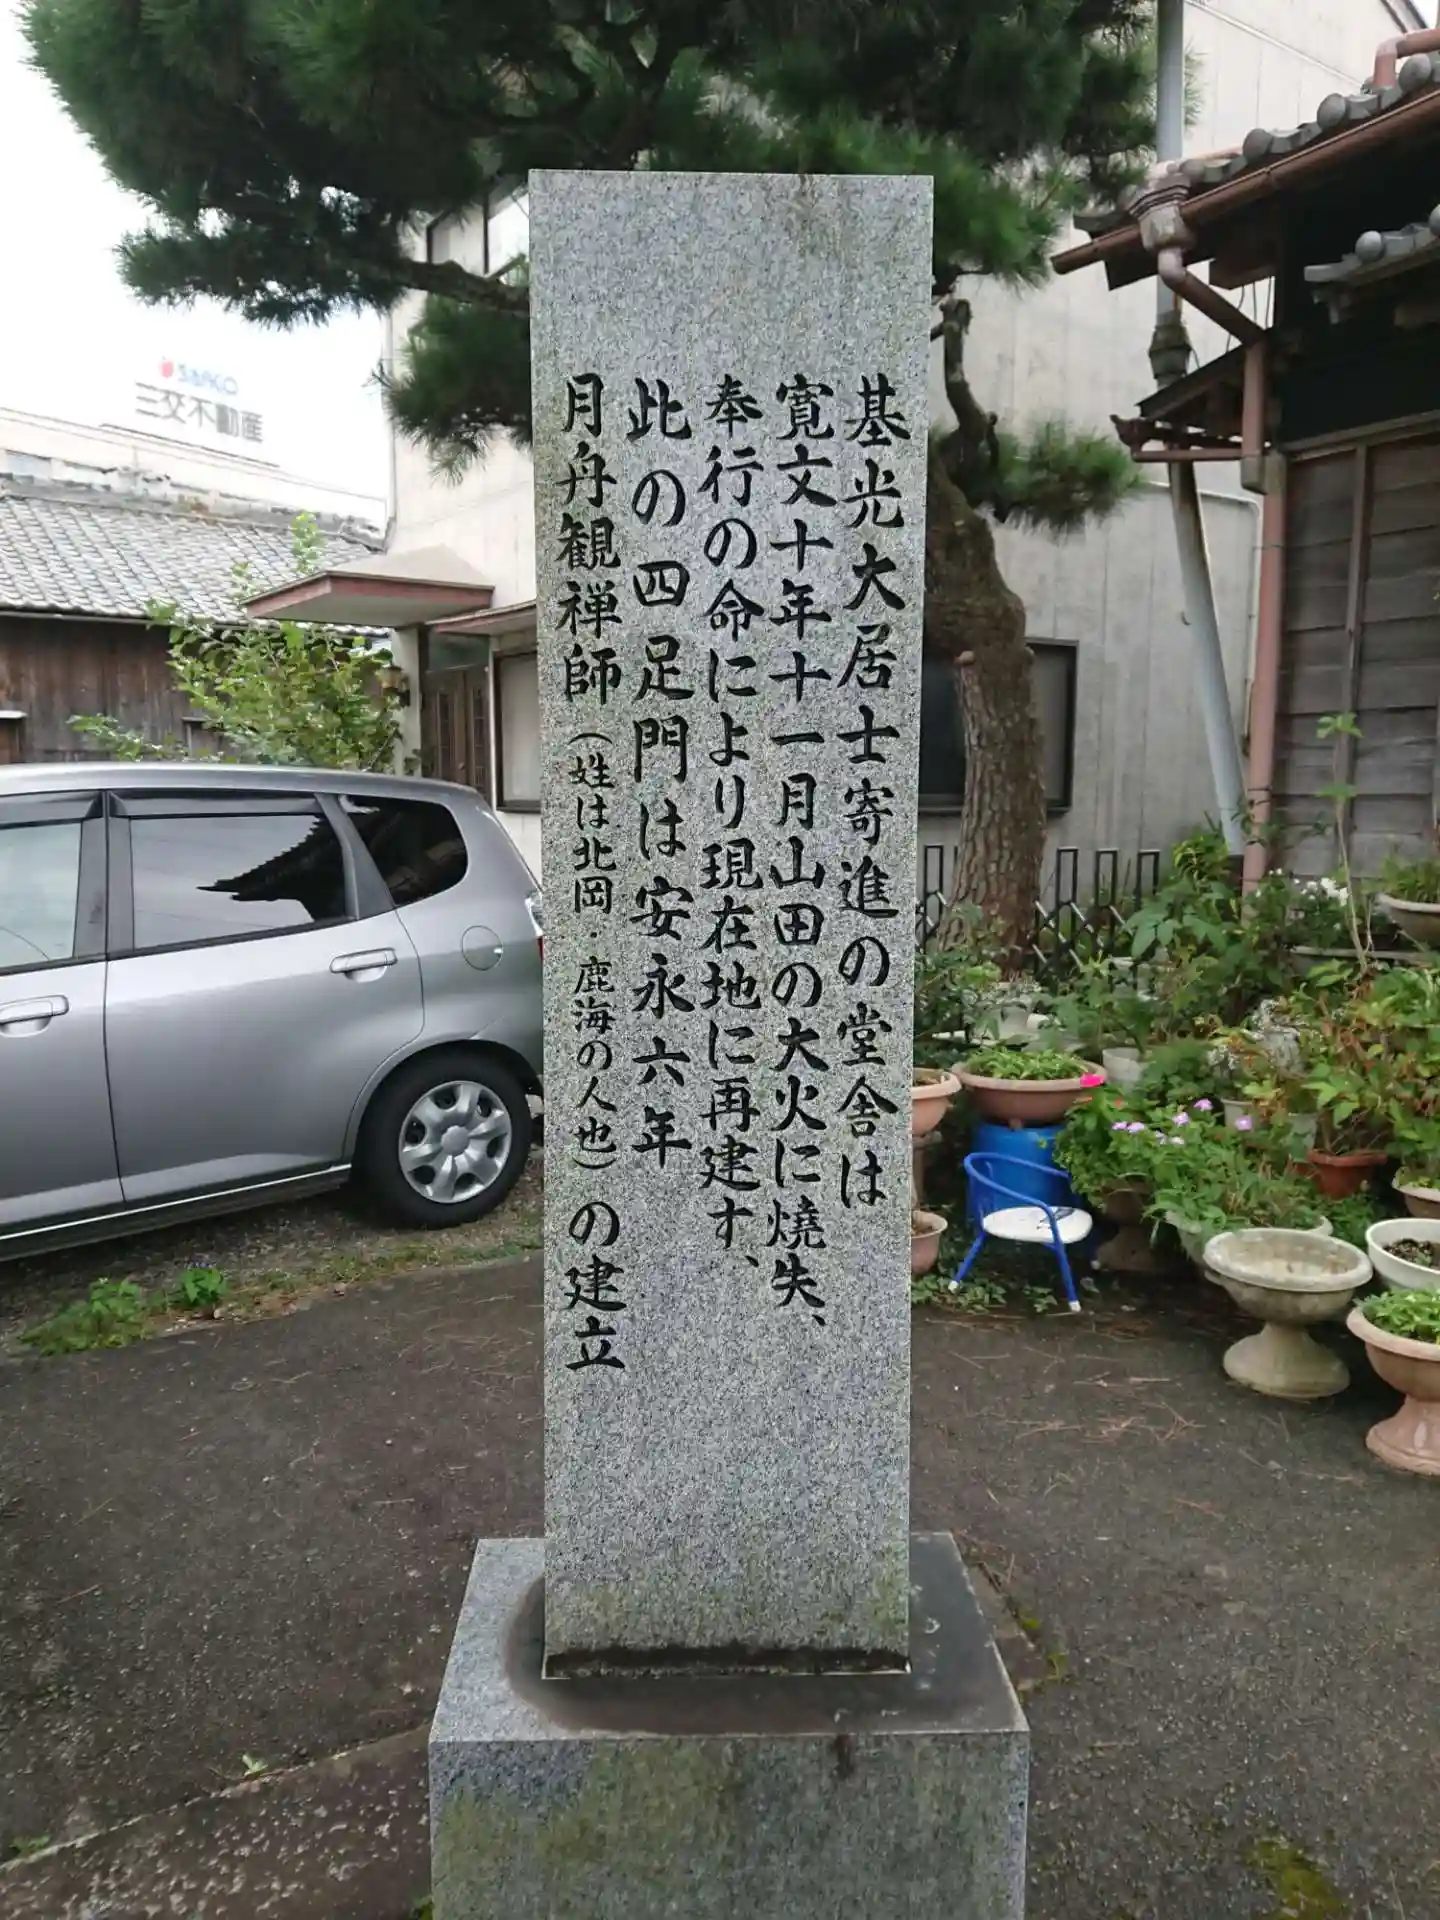 基光大居士寄進の堂舎は
寛文十年十一月山田の大火に焼失、
奉行の命により現在地に再建す、
此の四足門は安永六年
月舟観禅師(姓は北岡・鹿海の人也)の建立
SANKO
三交不動産